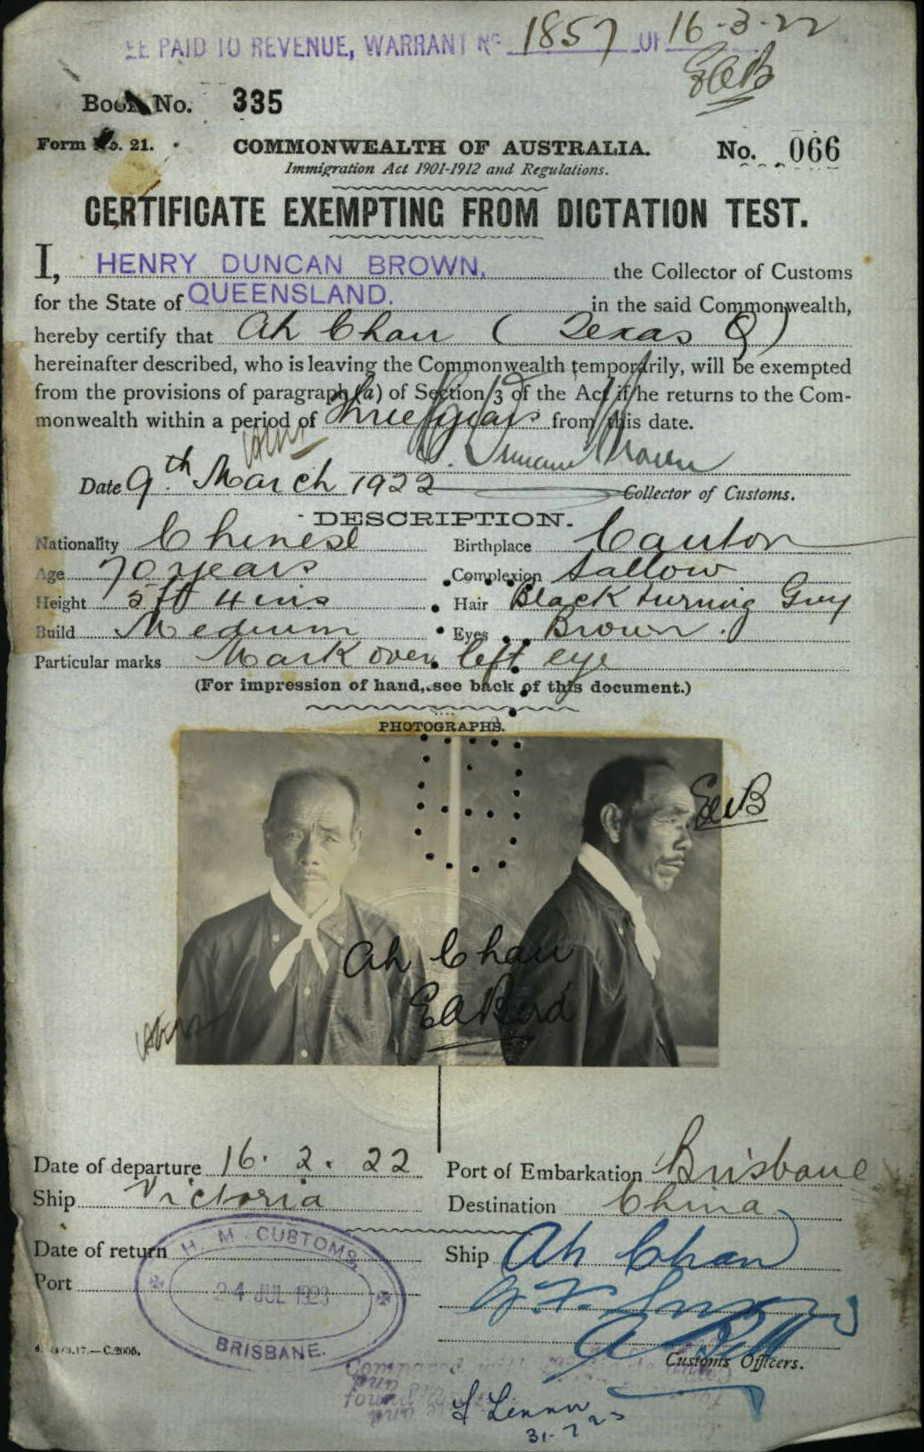 EE PAID TO REVENUE, WARRANT No 1857 OF 16-3-22
Book No. 335
Form No. 21.
COMMONWEALTH OF AUSTRALIA.
No. 066
Immigration Act 1901-1912 and Regulations.
CERTIFICATE EXEMPTING FROM DICTATION TEST.
I, HENRY DUNCAN BROWN, the Collector of Customs
for the State of QUEENSLAND. in the said Commonwealth,
hereby certify that Ah Chan ( Texas Q )
hereinafter described, who is leaving the Commonwealth temporarily, will be exempted
from the provisions of paragraph (a) of Section 3 of the Act if he returns to the Com-
monwealth within a period of three years from this date.
H. Duncan Brown
Date 9th March 1922 Collector of Customs.
DESCRIPTION.
Nationality Chinese Birthplace Canton
Age 70 years Complexion Sallow
Height 5 ft 4 ins Hair Black turning Grey
Build Medium Eyes Brown.
Particular marks Mark over left eye
(For impression of hand, see back of this document.)
PHOTOGRAPHS.
EAB
Ah Chan
EA Bird
Date of departure 16. 2. 22 Port of Embarkation Brisbane
Ship Victoria Destination China
Date of return Ship Ah Chan
Port
H. M. CUSTOMS,
24 JUL 1923
BRISBANE.
A Bell
Customs Officers.
C.2006.
Compared with
found
31-7-23